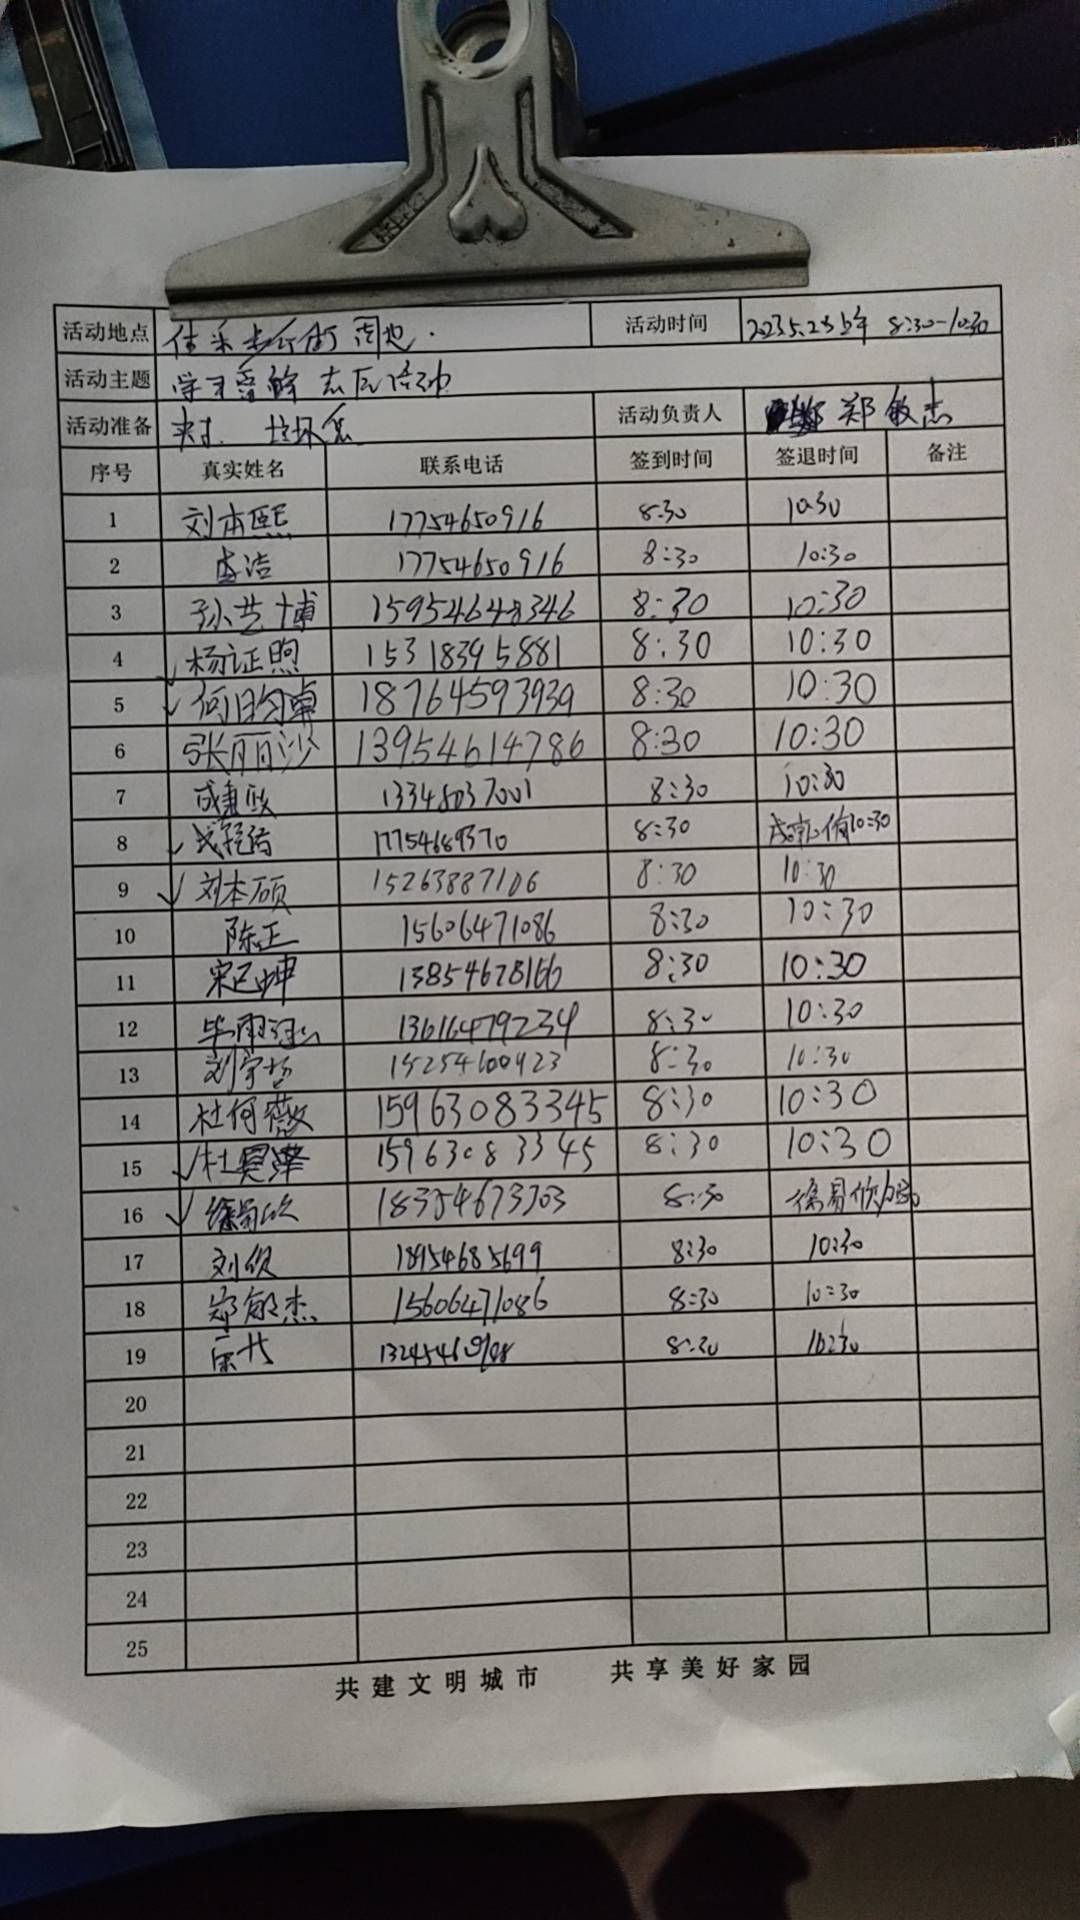 活动地点 佳乐步行街周边. 活动时间 2023.5.28上午 8:30-10:30
活动主题 学习雷锋志愿活动
活动准备 夹子. 垃圾袋 活动负责人 郑敏杰
序号 真实姓名 联系电话 签到时间 签退时间 备注
1 刘本熙 17754650916 8:30 10:30
2 17754650916 8:30 10:30
3 孙艺博 15954648346 8:30 10:30
4 ✓杨证煦 15318395881 8:30 10:30
5 ✓何昀卓 18764593939 8:30 10:30
6 张丽沙 13954614786 8:30 10:30
7 13348037001 8:30 10:30
8 ✓ 17754689370 8:30 10:30
9 ✓刘本硕 15263887106 8:30 10:30
10 陈正 15606471086 8:30 10:30
11 13854678166 8:30 10:30
12 13616479234 8:30 10:30
13 15254600923 8:30 10:30
14 杜何薇 15963083345 8:30 10:30
15 ✓杜昊泽 15963083345 8:30 10:30
16 ✓徐易欣 18354673703 8:30 徐易欣
17 18954685699 8:30 10:30
18 郑敏杰 15606471086 8:30 10:30
19 8:30 10:30
20
21
22
23
24
25
共建文明城市 共享美好家园